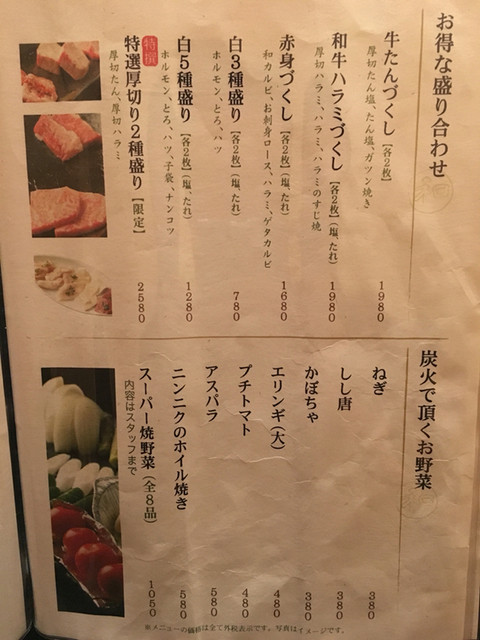 お得な盛り合わせ
牛たんづくし【各2枚】 1980
厚切たん塩、たん塩、ガツン焼き
和牛ハラミづくし【各2枚】(塩、たれ) 1980
厚切ハラミ、ハラミ、ハラミのすじ焼
赤身づくし【各2枚】(塩、たれ) 1680
和カルビ、お刺身ロース、ハラミ、ゲタカルビ
白3種盛り【各2枚】(塩、たれ) 780
ホルモン、とろ、ハツ
白5種盛り【各2枚】(塩、たれ) 1280
ホルモン、とろ、ハツ、子袋、ナンコツ
特撰
特選厚切り2種盛り【限定】 2580
厚切たん、厚切ハラミ
炭火で頂くお野菜
ねぎ 380
しし唐 380
かぼちゃ 380
エリンギ(大) 480
プチトマト 480
アスパラ 580
ニンニクのホイル焼き 580
スーパー焼野菜(全8品) 1050
内容はスタッフまで
※メニューの価格は全て外税表示です。写真はイメージです。